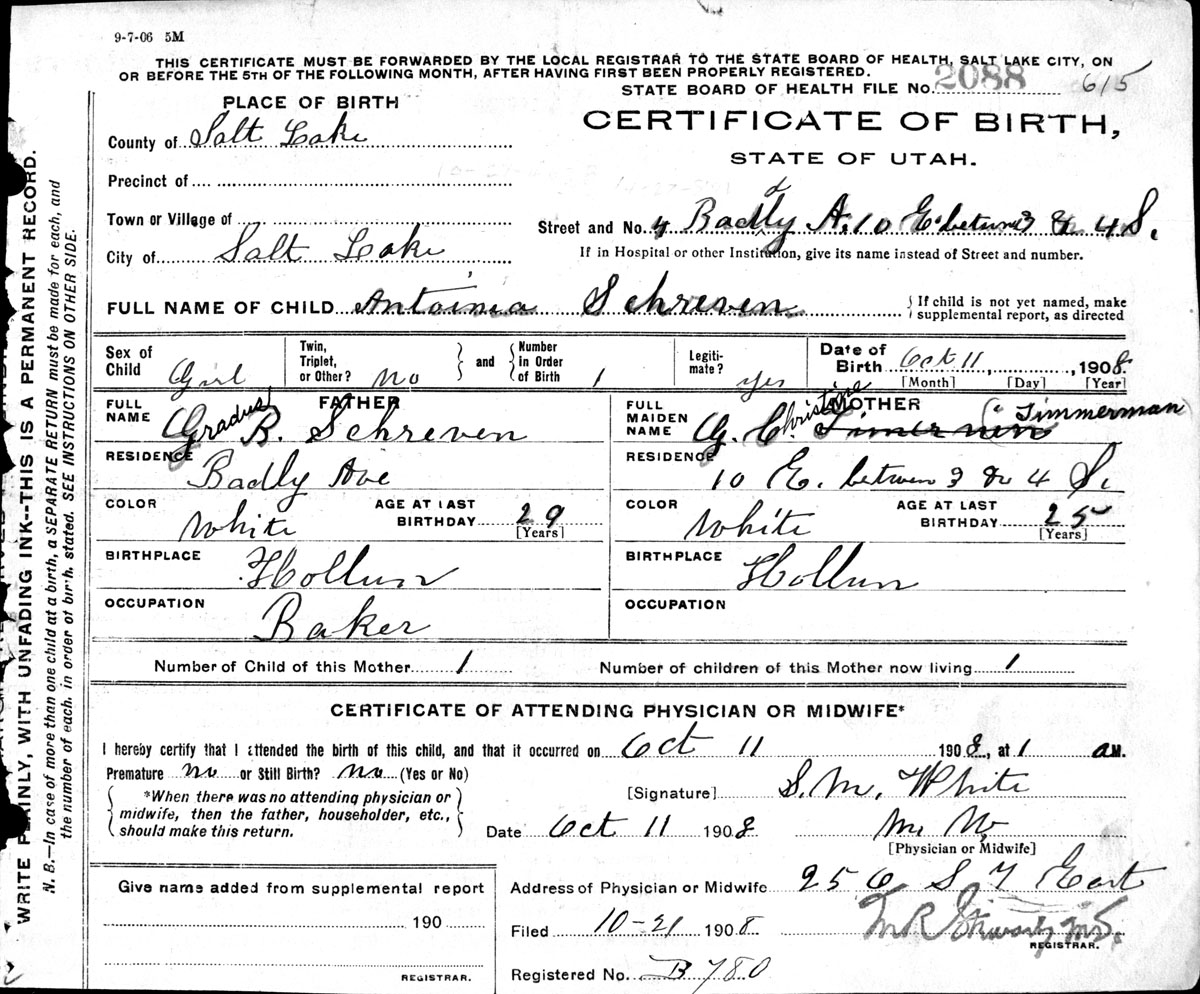 9-7-06 5M
THIS CERTIFICATE MUST BE FORWARDED BY THE LOCAL REGISTRAR TO THE STATE BOARD OF HEALTH, SALT LAKE CITY, ON
OR BEFORE THE 5TH OF THE FOLLOWING MONTH, AFTER HAVING FIRST BEEN PROPERLY REGISTERED.
STATE BOARD OF HEALTH FILE No. 2088 615
PLACE OF BIRTH
CERTIFICATE OF BIRTH,
STATE OF UTAH.
County of Salt Lake
Precinct of
Town or Village of
City of Salt Lake
Street and No. 4 Badly A. 10 E. betwn 3 & 4 S.
If in Hospital or other Institution, give its name instead of Street and number.
FULL NAME OF CHILD Antoinia Schreven
{If child is not yet named, make
supplemental report, as directed
Sex of Child Girl
Twin, Triplet, or Other? no
and {Number in Order of Birth 1
Legitimate? yes
Date of Birth Oct 11, 1908
[Month] [Day] [Year]
FATHER
FULL NAME Gradus B. Schreven
RESIDENCE Badly Ave
COLOR White AGE AT LAST BIRTHDAY 29
[Years]
BIRTHPLACE Hollun
OCCUPATION Baker
MOTHER
FULL MAIDEN NAME G. Christine Timmerman
RESIDENCE 10 E. betwen 3 & 4 S.
COLOR White AGE AT LAST BIRTHDAY 25
[Years]
BIRTHPLACE Hollun
OCCUPATION
Number of Child of this Mother 1 Number of children of this Mother now living 1
CERTIFICATE OF ATTENDING PHYSICIAN OR MIDWIFE*
I hereby certify that I attended the birth of this child, and that it occurred on Oct 11 1908, at 1 a M.
Premature no or Still Birth? no (Yes or No)
{*When there was no attending physician or
midwife, then the father, householder, etc.,
should make this return.}
[Signature] S. M. White
Date Oct 11 1908 M W
[Physician or Midwife]
Give name added from supplemental report
190
REGISTRAR.
Address of Physician or Midwife 256 S 7 East
Filed 10-21 1908
REGISTRAR.
Registered No. B 780
WRITE PLAINLY, WITH UNFADING INK--THIS IS A PERMANENT RECORD.
N. B.—In case of more than one child at a birth, a SEPARATE RETURN must be made for each, and
the number of each, in order of birth, stated. SEE INSTRUCTIONS ON OTHER SIDE.